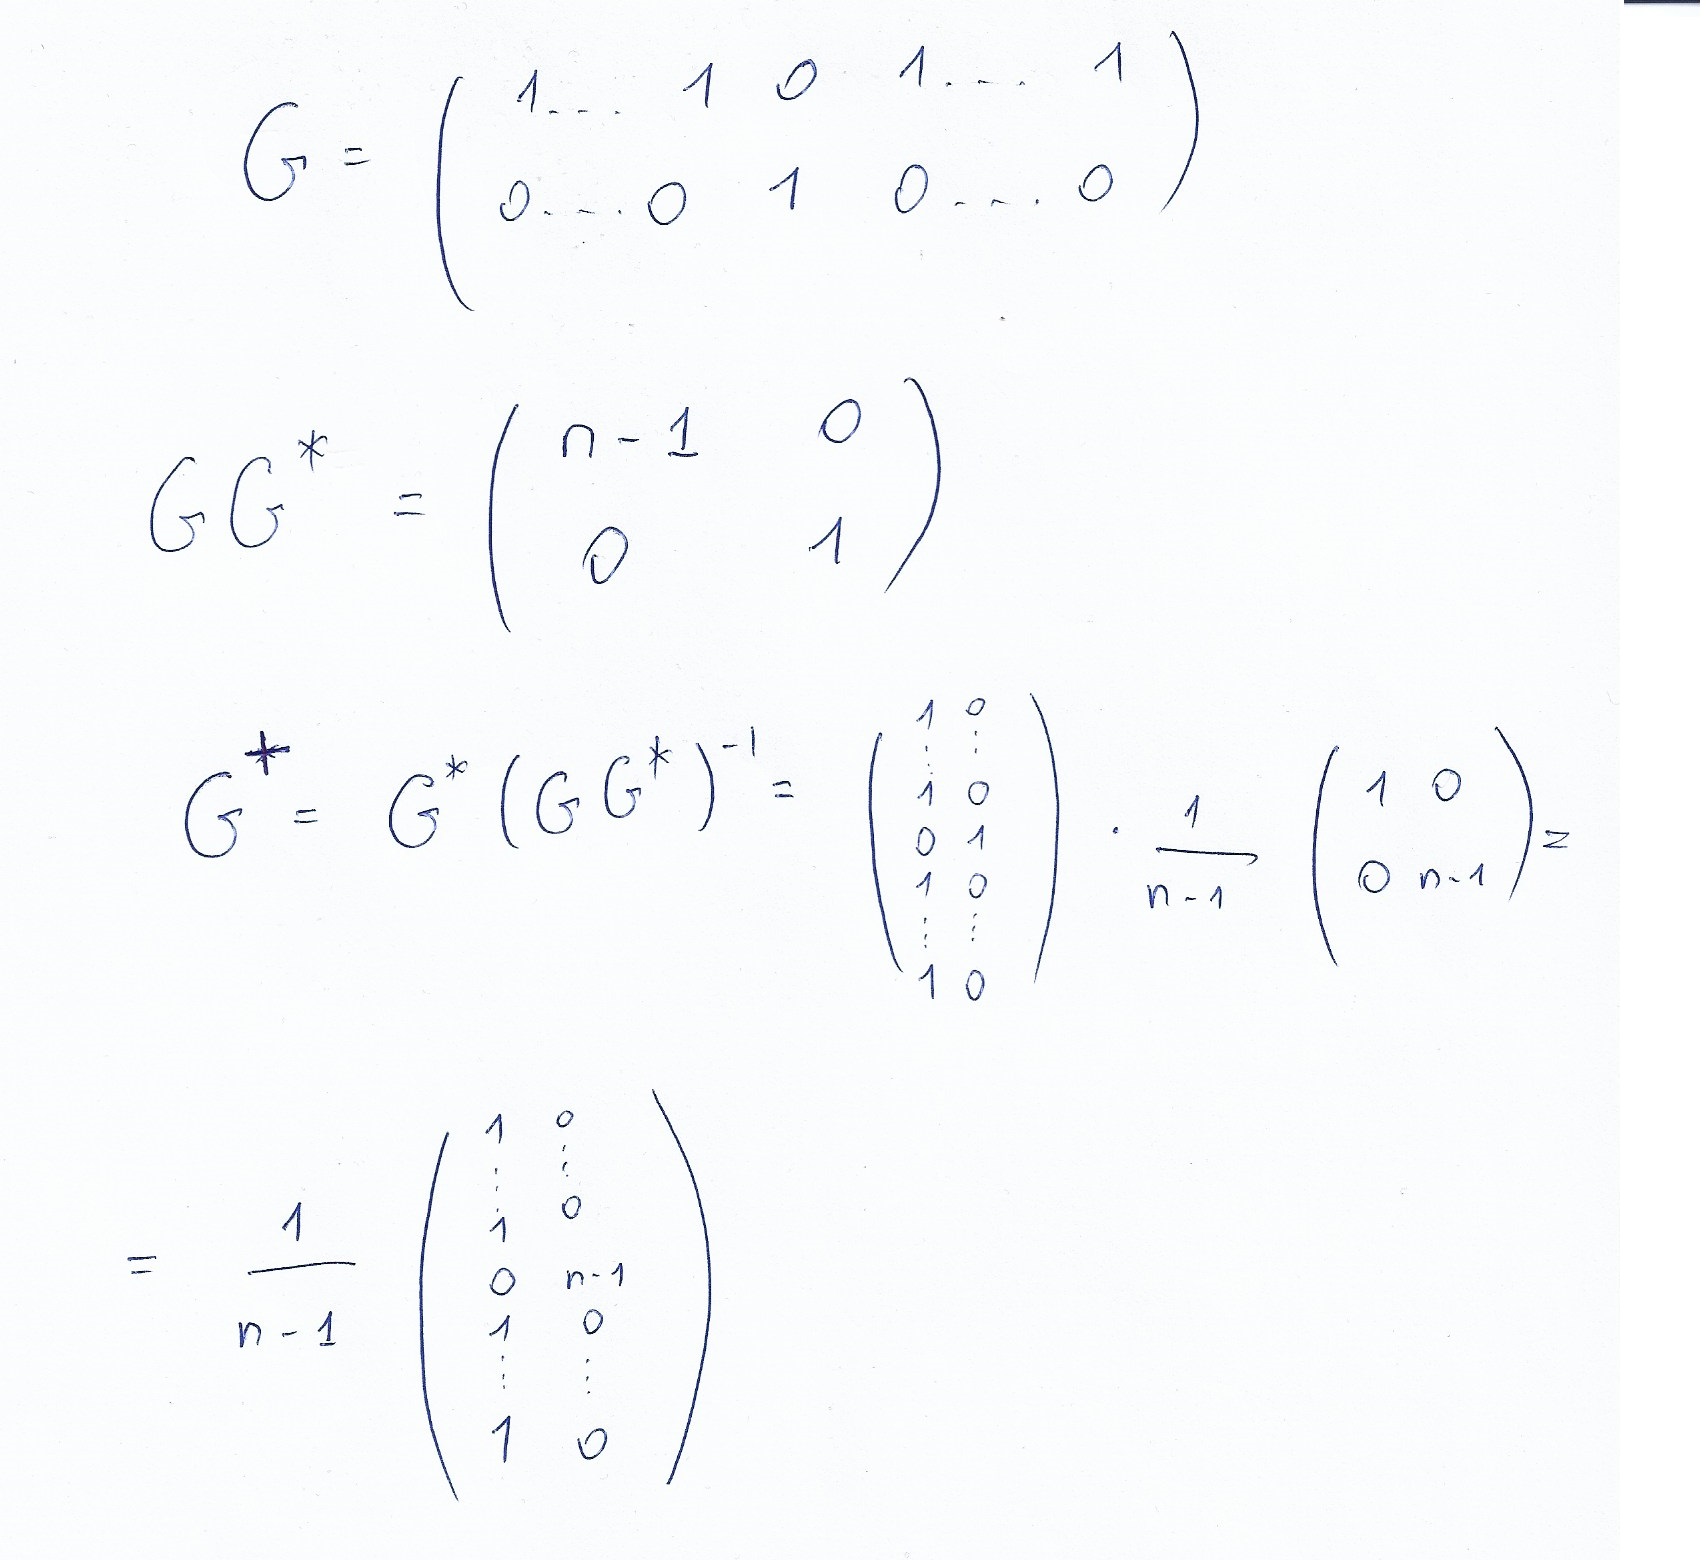 G = ( 1... 1 0 1... 1
0...0 1 0...0 )
GG* = ( n-1 0
0 1 )
G⁺ = G* (GG*)⁻¹ = ( 1 0
⋮ ⋮
1 0
0 1
1 0
⋮ ⋮
1 0 ) · 1/(n-1) ( 1 0
0 n-1 ) =
= 1/(n-1) ( 1 0
⋮ ⋮
1 0
0 n-1
1 0
⋮ ⋮
1 0 )